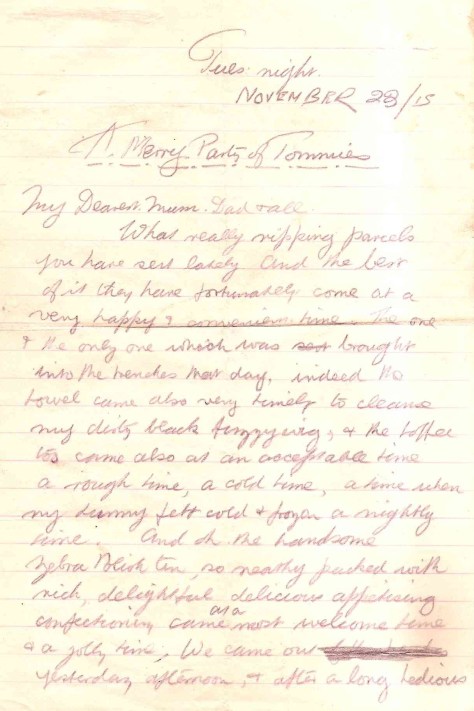 Tues. night.
NOVEMBER 23/15
A Merry Party of Tommies
My Dearest Mum. Dad & all.
What really ripping parcels
you have sent lately and the best
of it they have fortunately come at a
very happy & convenient time. The one
& the only one which was sent brought
into the trenches that day, indeed the
towel came also very timely to cleanse
my dirty black fuzzywig, & the toffee
came also at an acceptable time
a rough time, a cold time, a time when
my tummy felt cold & frozen a nightly
time. And oh the handsome
Zebra Polish tin, so neatly packed with
rich, delightful delicious appetising
confectionery came as a most welcome time
& a jolly time, We came out
yesterday afternoon, & after a long tedious